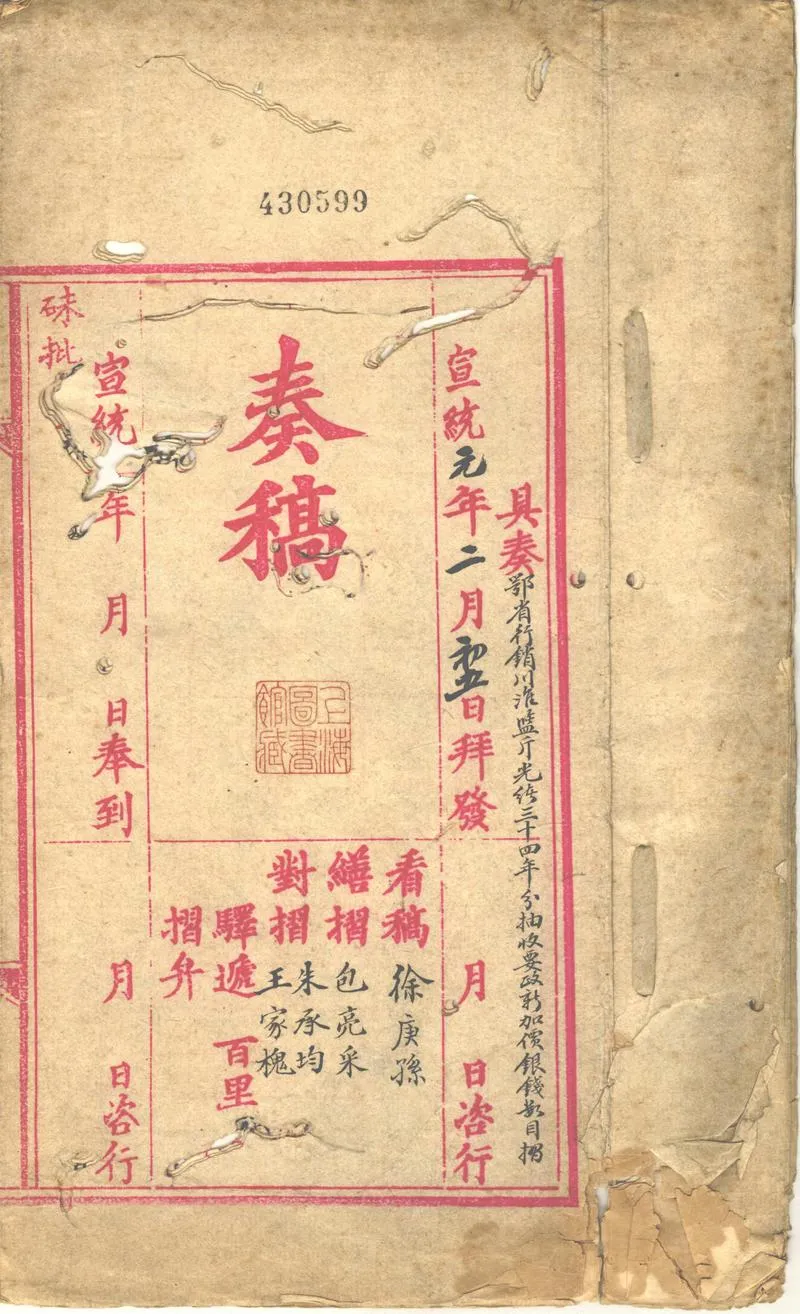 430599
具奏鄂省行銷川淮鹽斤光緒三十四年分抽收要政新加價銀錢數目摺
宣統元年二月初五日拜發
月 日咨行
奏稿
上海圖書館藏
看稿 徐庚孫
繕摺 包亮采
對摺 朱承均 王家槐
驛遞 百里
摺弁
硃批
宣統 年 月 日奉到
月 日咨行